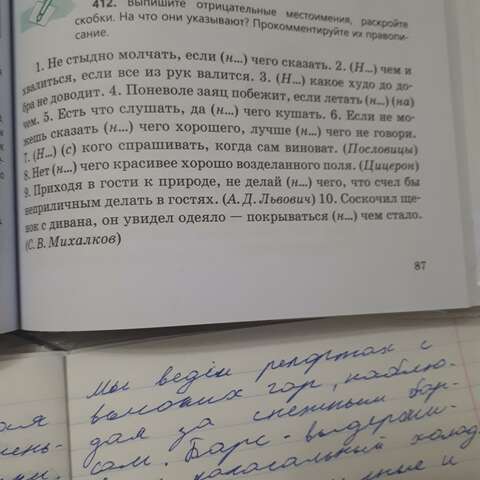 412. Выпишите отрицательные местоимения, раскройте
скобки. На что они указывают? Прокомментируйте их правопи-
сание.
1. Не стыдно молчать, если (н...) чего сказать. 2. (Н...) чем и
хвалиться, если все из рук валится. 3. (Н...) какое худо до до-
бра не доводит. 4. Поневоле заяц побежит, если летать (н...) (на)
чем. 5. Есть что слушать, да (н...) чего кушать. 6. Если не мо-
жешь сказать (н...) чего хорошего, лучше (н...) чего не говори.
7. (Н...) (с) кого спрашивать, когда сам виноват. (Пословицы)
8. Нет (н...) чего красивее хорошо возделанного поля. (Цицерон)
9. Приходя в гости к природе, не делай (н...) чего, что счел бы
неприличным делать в гостях. (А. Д. Львович) 10. Соскочил ще-
нок с дивана, он увидел одеяло — покрываться (н...) чем стало.
(С. В. Михалков)
87
Мы ведём репортаж с
высоких гор, наблю-
дая за снежным бар-
сом. Барс - выдержи-
колоссальный холод